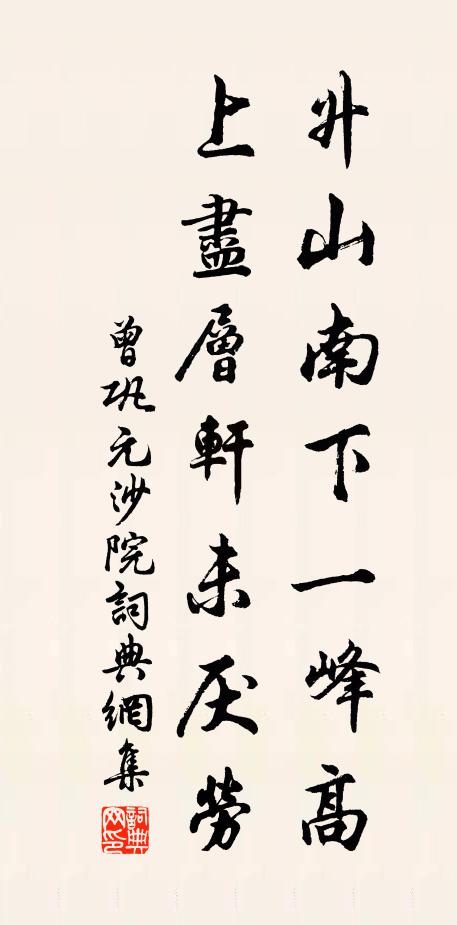 升山南下一峰高
上盡層軒未厌勞
曾巩元沙院詞典網集
詞典网印